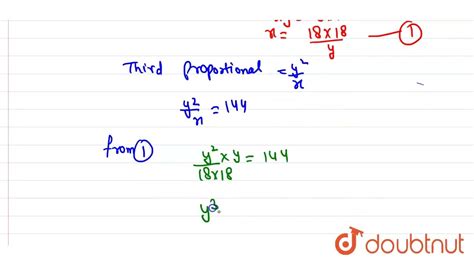 x = 18×18/y — ①
Third proportional = y²/x
y²/x = 144
from ① y²/18×18 × y = 144
y³
doubtnut